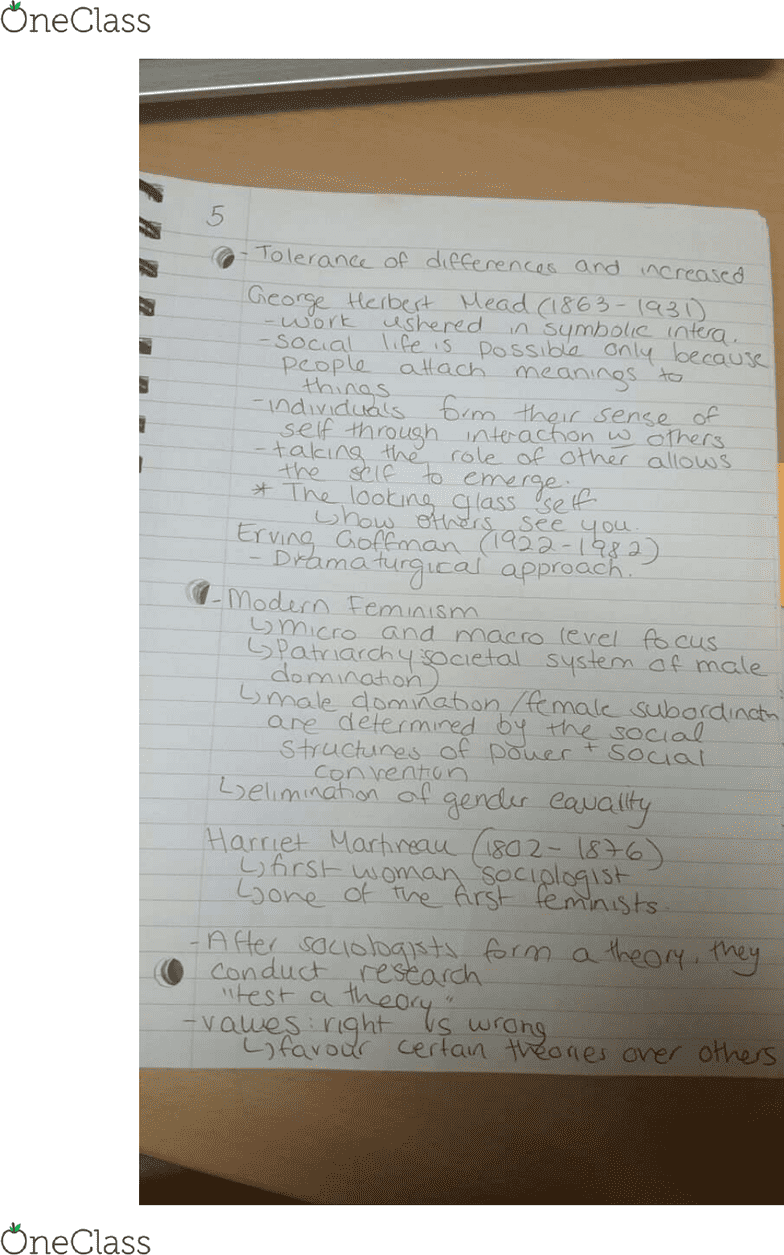 OneClass
5
- Tolerance of differences and increased
George Herbert Mead (1863-1931)
- work ushered in symbolic intera.
- social life is possible only because
people attach meanings to
things
- individuals form their sense of
self through interaction w others
- taking the role of other allows
the self to emerge.
* The looking glass self
↳ how others see you.
Erving Goffman (1922-1982)
- Dramaturgical approach.
- Modern Feminism
↳ micro and macro level focus
↳ Patriarchy: societal system of male
domination)
↳ male domination/female subordinatn
are determined by the social
structures of power + social
convention
↳ elimination of gender equality
Harriet Martineau (1802-1876)
↳ first woman sociologist
↳ one of the first feminists.
- After sociologists form a theory, they
conduct research
"test a theory"
- values: right vs wrong
↳ favour certain theories over others
OneClass